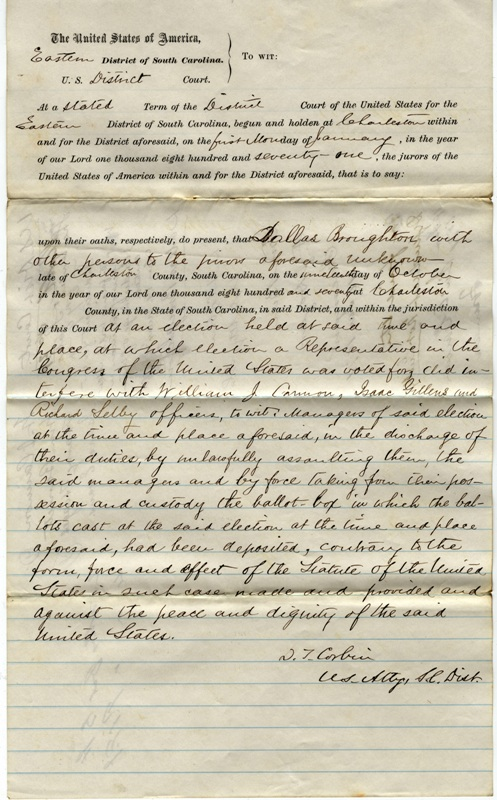 The United States of America,
Eastern District of South Carolina.
To wit:
U. S. District Court.
At a Stated Term of the District Court of the United States for the
Eastern District of South Carolina, begun and holden at Charleston within
and for the District aforesaid, on the first Monday of January, in the year
of our Lord one thousand eight hundred and seventy-one, the jurors of the
United States of America within and for the District aforesaid, that is to say:
upon their oaths, respectively, do present, that Dallas Broughton with
other persons to the jurors aforesaid unknown
late of Charleston County, South Carolina, on the nineteenth day of October
in the year of our Lord one thousand eight hundred and seventy at Charleston
County, in the State of South Carolina, in said District, and within the jurisdiction
of this Court at an election held at said time and
place, at which election a Representative in the
Congress of the United States was voted for, did in-
terfere with William J. Cannon, Isaac Gillens and
Richard Selby officers, to wit: Managers of said election
at the time and place aforesaid, in the discharge of
their duties, by unlawfully assaulting them, the
said managers and by force taking from their pos-
session and custody the ballot-box in which the bal-
lots cast at the said election at the time and place
aforesaid, had been deposited, contrary to the
form, force and effect of the Statute of the United
States in such case made and provided and
against the peace and dignity of the said
United States.
D. T. Corbin
U.S. Atty, S.C. Dist.